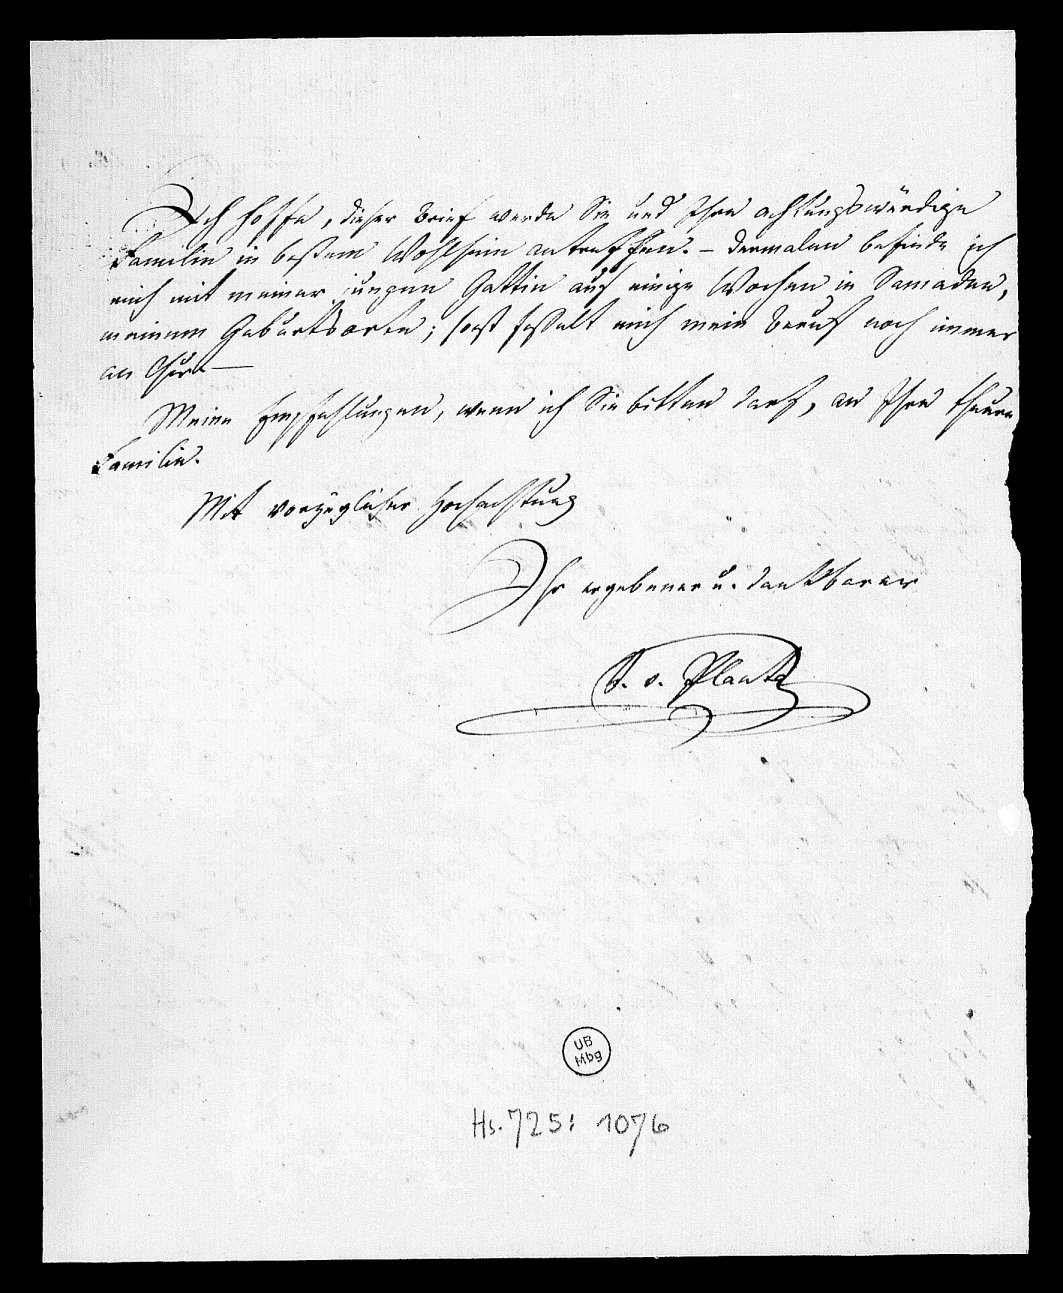 Ich hoffe, dieser Brief werde Sie und Ihre achtungswürdige
Familie in beßtem Wohlsein antreffen. – Dermalen befinde ich
mich mit meiner jungen Gattin auf einige Wochen in Samaden,
meinem Geburtsorte; sonst feßelt mich mein Beruf noch immer
an Chur. —
Meine Empfehlungen, wenn ich Sie bitten darf, an Ihre theure
Familie.
Mit vorzüglicher Hochachtung
Ihr ergebener u. dankbarer
v. Planta
UB
Mbg
Hs. 725: 1076